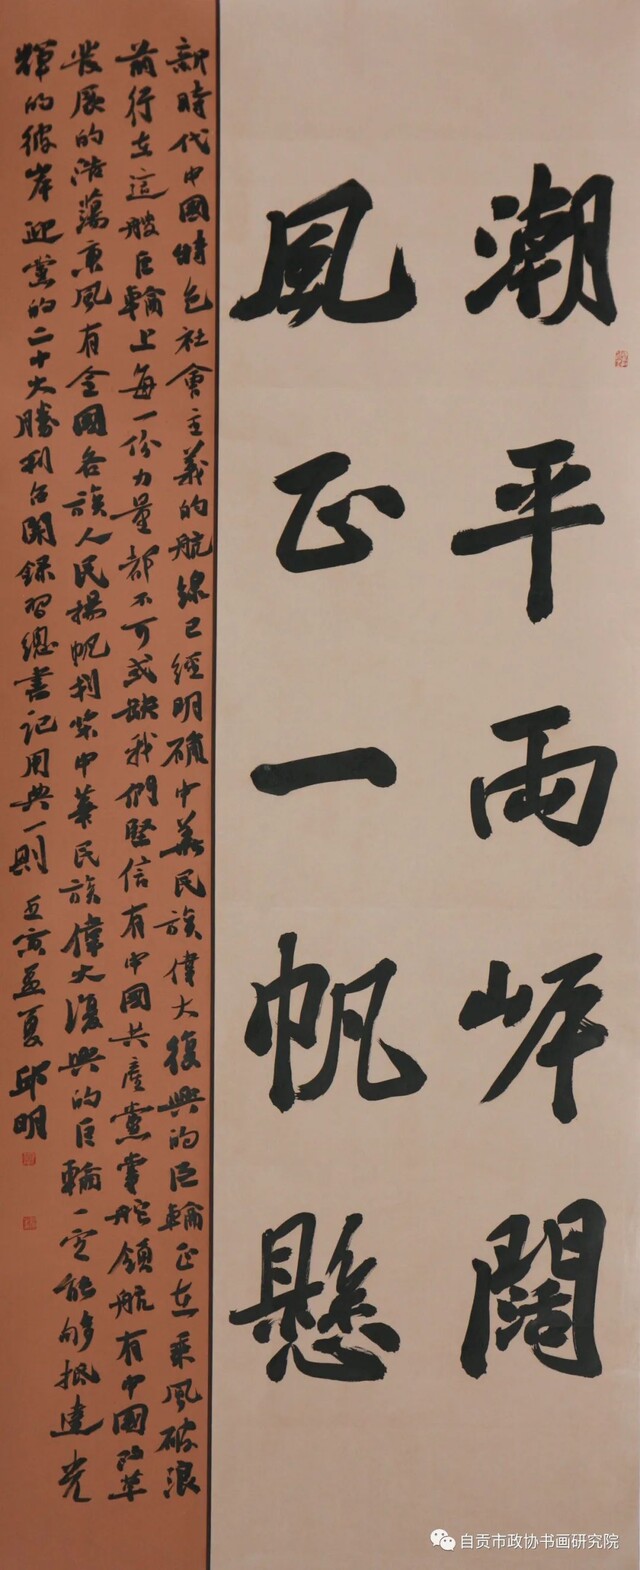 潮平兩岸闊
風正一帆懸
新時代中國特色社會主義的航線已經明確中華民族偉大復興的巨輪正在乘風破浪
前行在這艘巨輪上每一份力量都不可或缺我們堅信有中國共產黨掌舵領航有中國改革
發展的浩蕩東風有全國各族人民揚帆划槳中華民族偉大復興的巨輪一定能夠抵達光
輝的彼岸迎黨的二十大勝利召開錄習總書記用典一則 壬寅孟夏 邱明
自贡市政协书画研究院